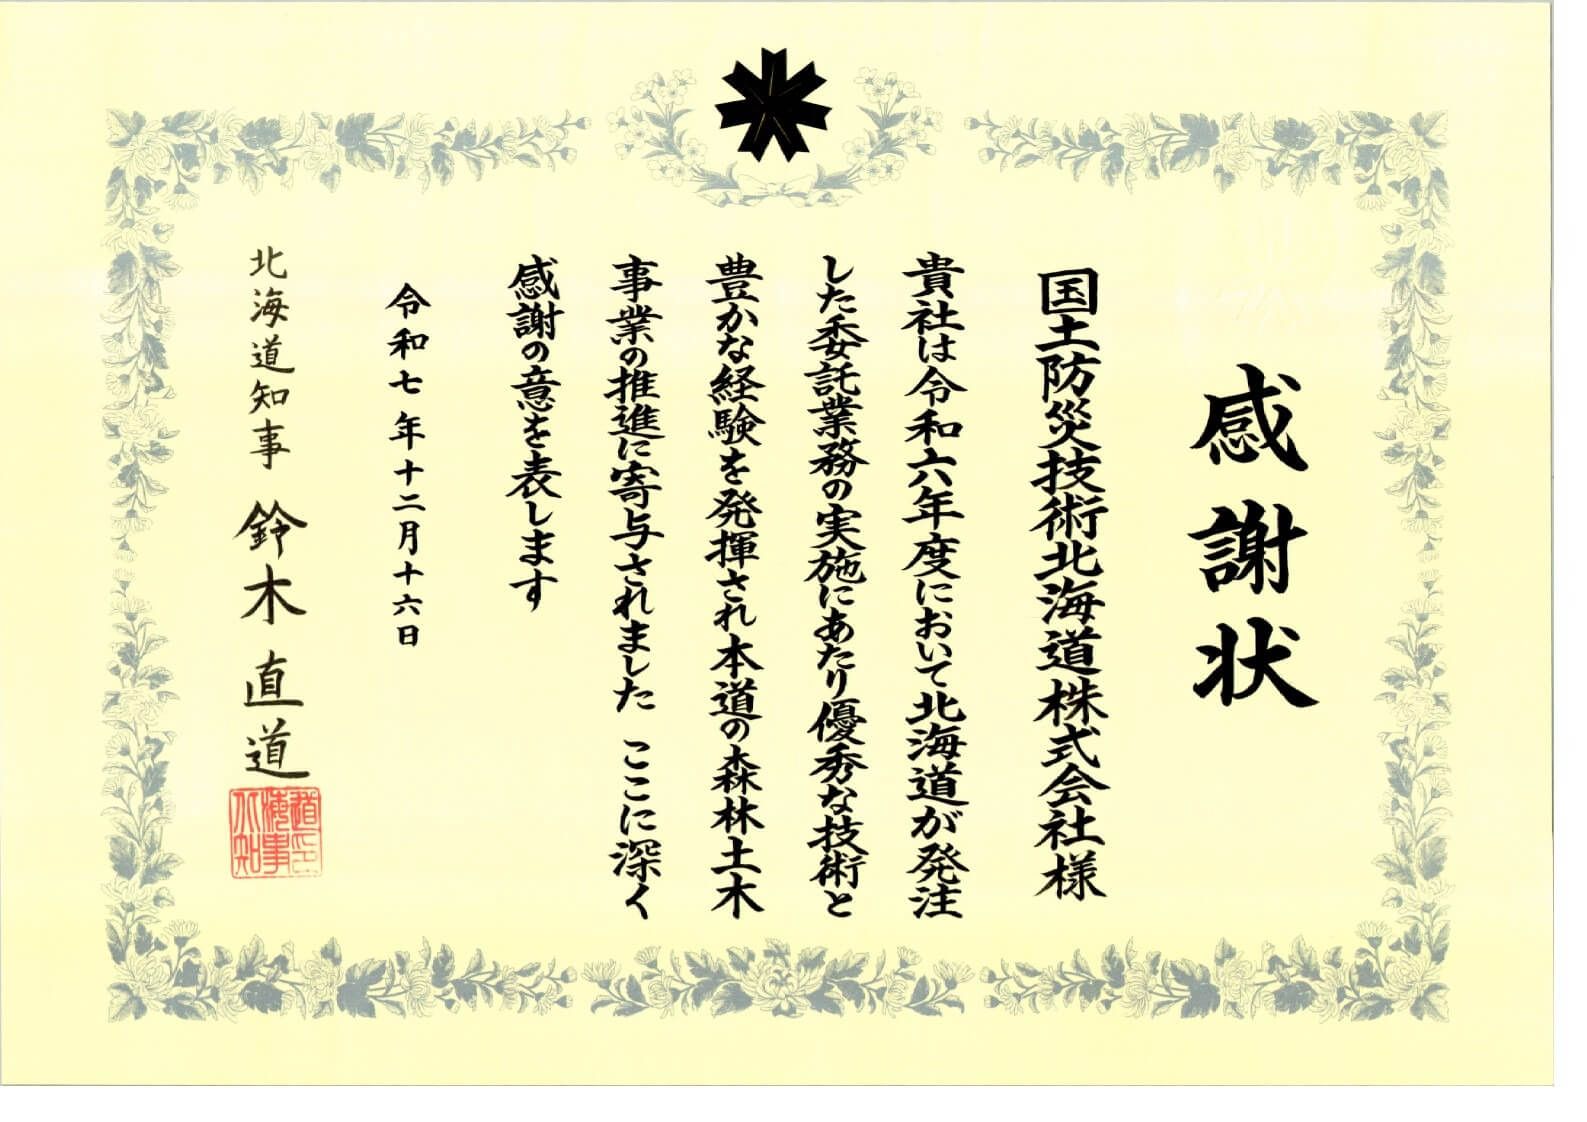 感謝状
国土防災技術北海道株式会社様
貴社は令和六年度において北海道が発注
した委託業務の実施にあたり優秀な技術と
豊かな経験を発揮され本道の森林土木
事業の推進に寄与されました ここに深く
感謝の意を表します
令和七年十二月十六日
北海道知事 鈴木直道